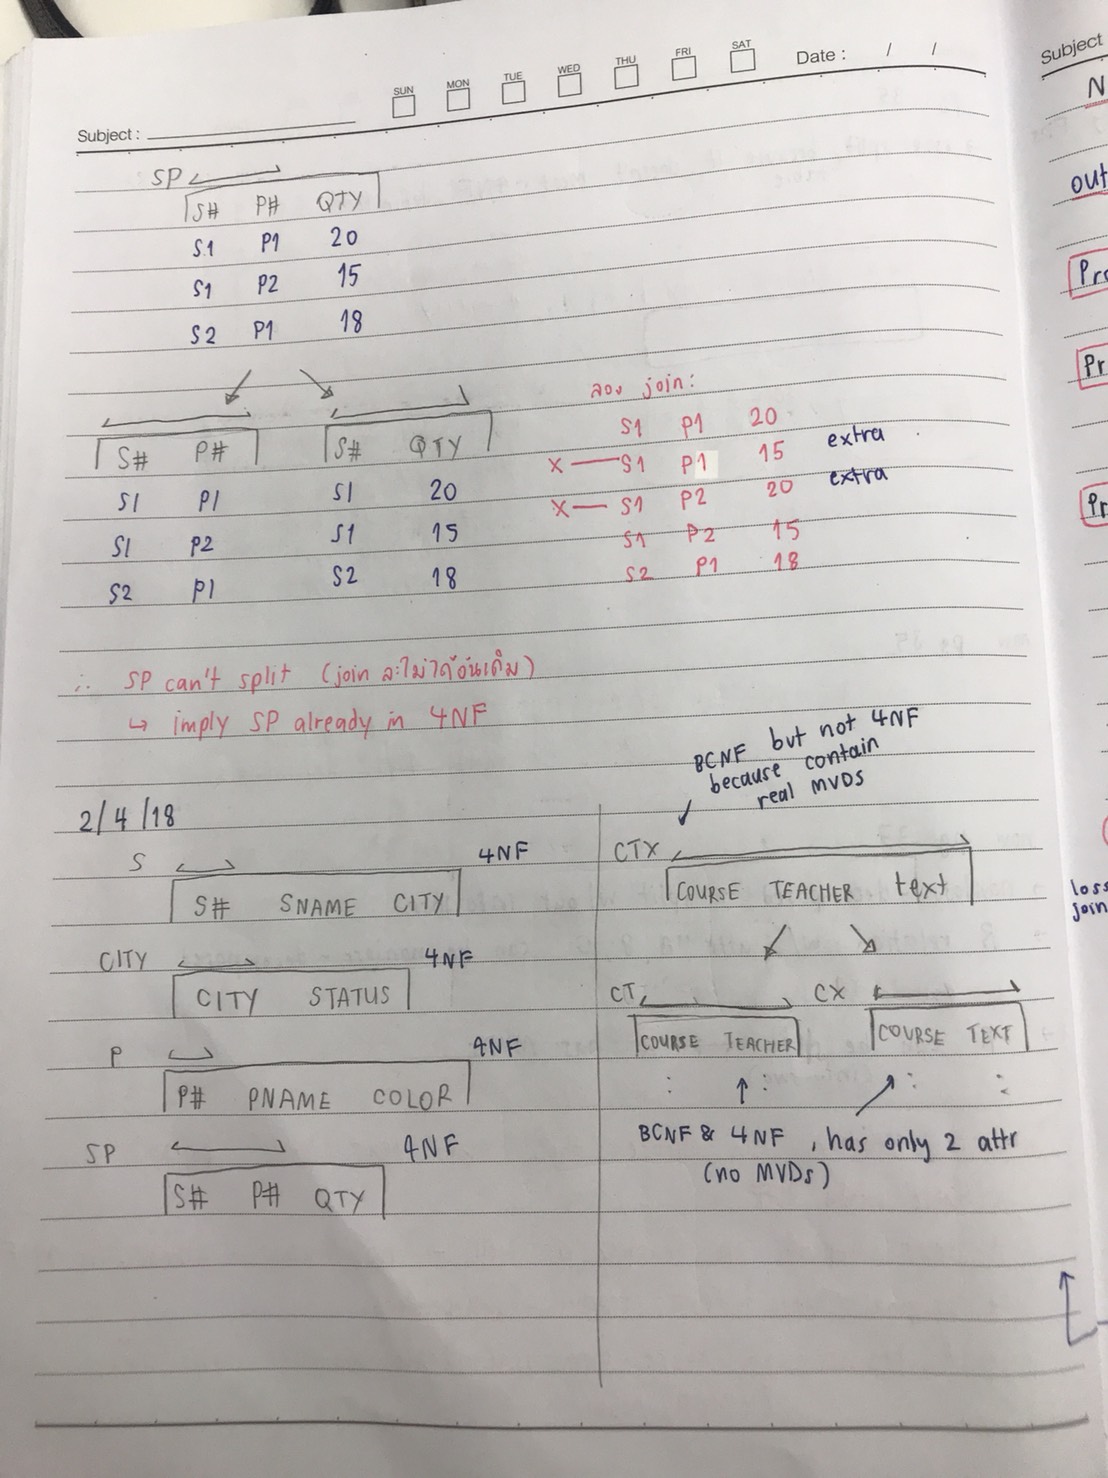 SUN MON TUE WED THU FRI SAT Date : / /
Subject :
SP
S# P# QTY
S1 P1 20
S1 P2 15
S2 P1 18
S# P#
S1 P1
S1 P2
S2 P1
S# QTY
S1 20
S1 15
S2 18
ลอง join:
S1 P1 20
X S1 P1 15 extra
X S1 P2 20 extra
S1 P2 15
S2 P1 18
∴ SP can't split (join ละไม่ได้อันเดิม)
↳ imply SP already in 4NF
2/4/18
S 4NF
S# SNAME CITY
CITY 4NF
CITY STATUS
P 4NF
P# PNAME COLOR
SP 4NF
S# P# QTY
BCNF but not 4NF
because contain
real MVDs
CTX
COURSE TEACHER text
CT CX
COURSE TEACHER COURSE TEXT
BCNF & 4NF , has only 2 attr
(no MVDs)
Subject
N
out
Pr
Pr
loss
join